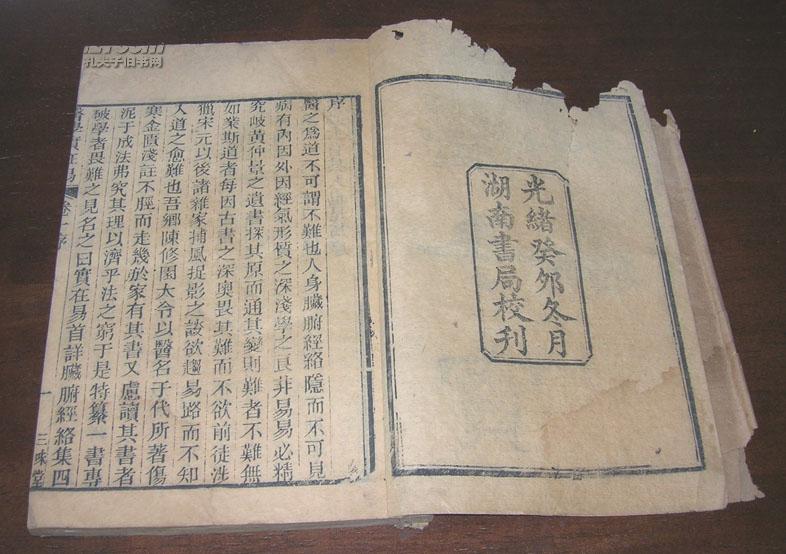 光緒癸卯冬月
湖南書局校刊
序
醫之爲道不可謂不難也人身臟腑經絡隱而不可見
病有內因外因經氣形質之深淺學之良非易易必精
究岐黃仲景之遺書探其原而通其變則難者不難無
如業斯道者每因古書之深奧畏其難而不欲前徒涉
獵宋元以後諸雜家捕風捉影之談欲趨易路而不知
入道之愈難也吾鄉陳修園大令以醫名于代所著傷
寒金匱淺註不脛而走幾於家有其書又慮讀其書者
泥于成法弗究其理以濟乎法之窮于是特纂一書專
破學者畏難之見名之曰實在易首詳臟腑經絡集四
醫學實在易 卷一序 一 三味堂
孔夫子旧书网